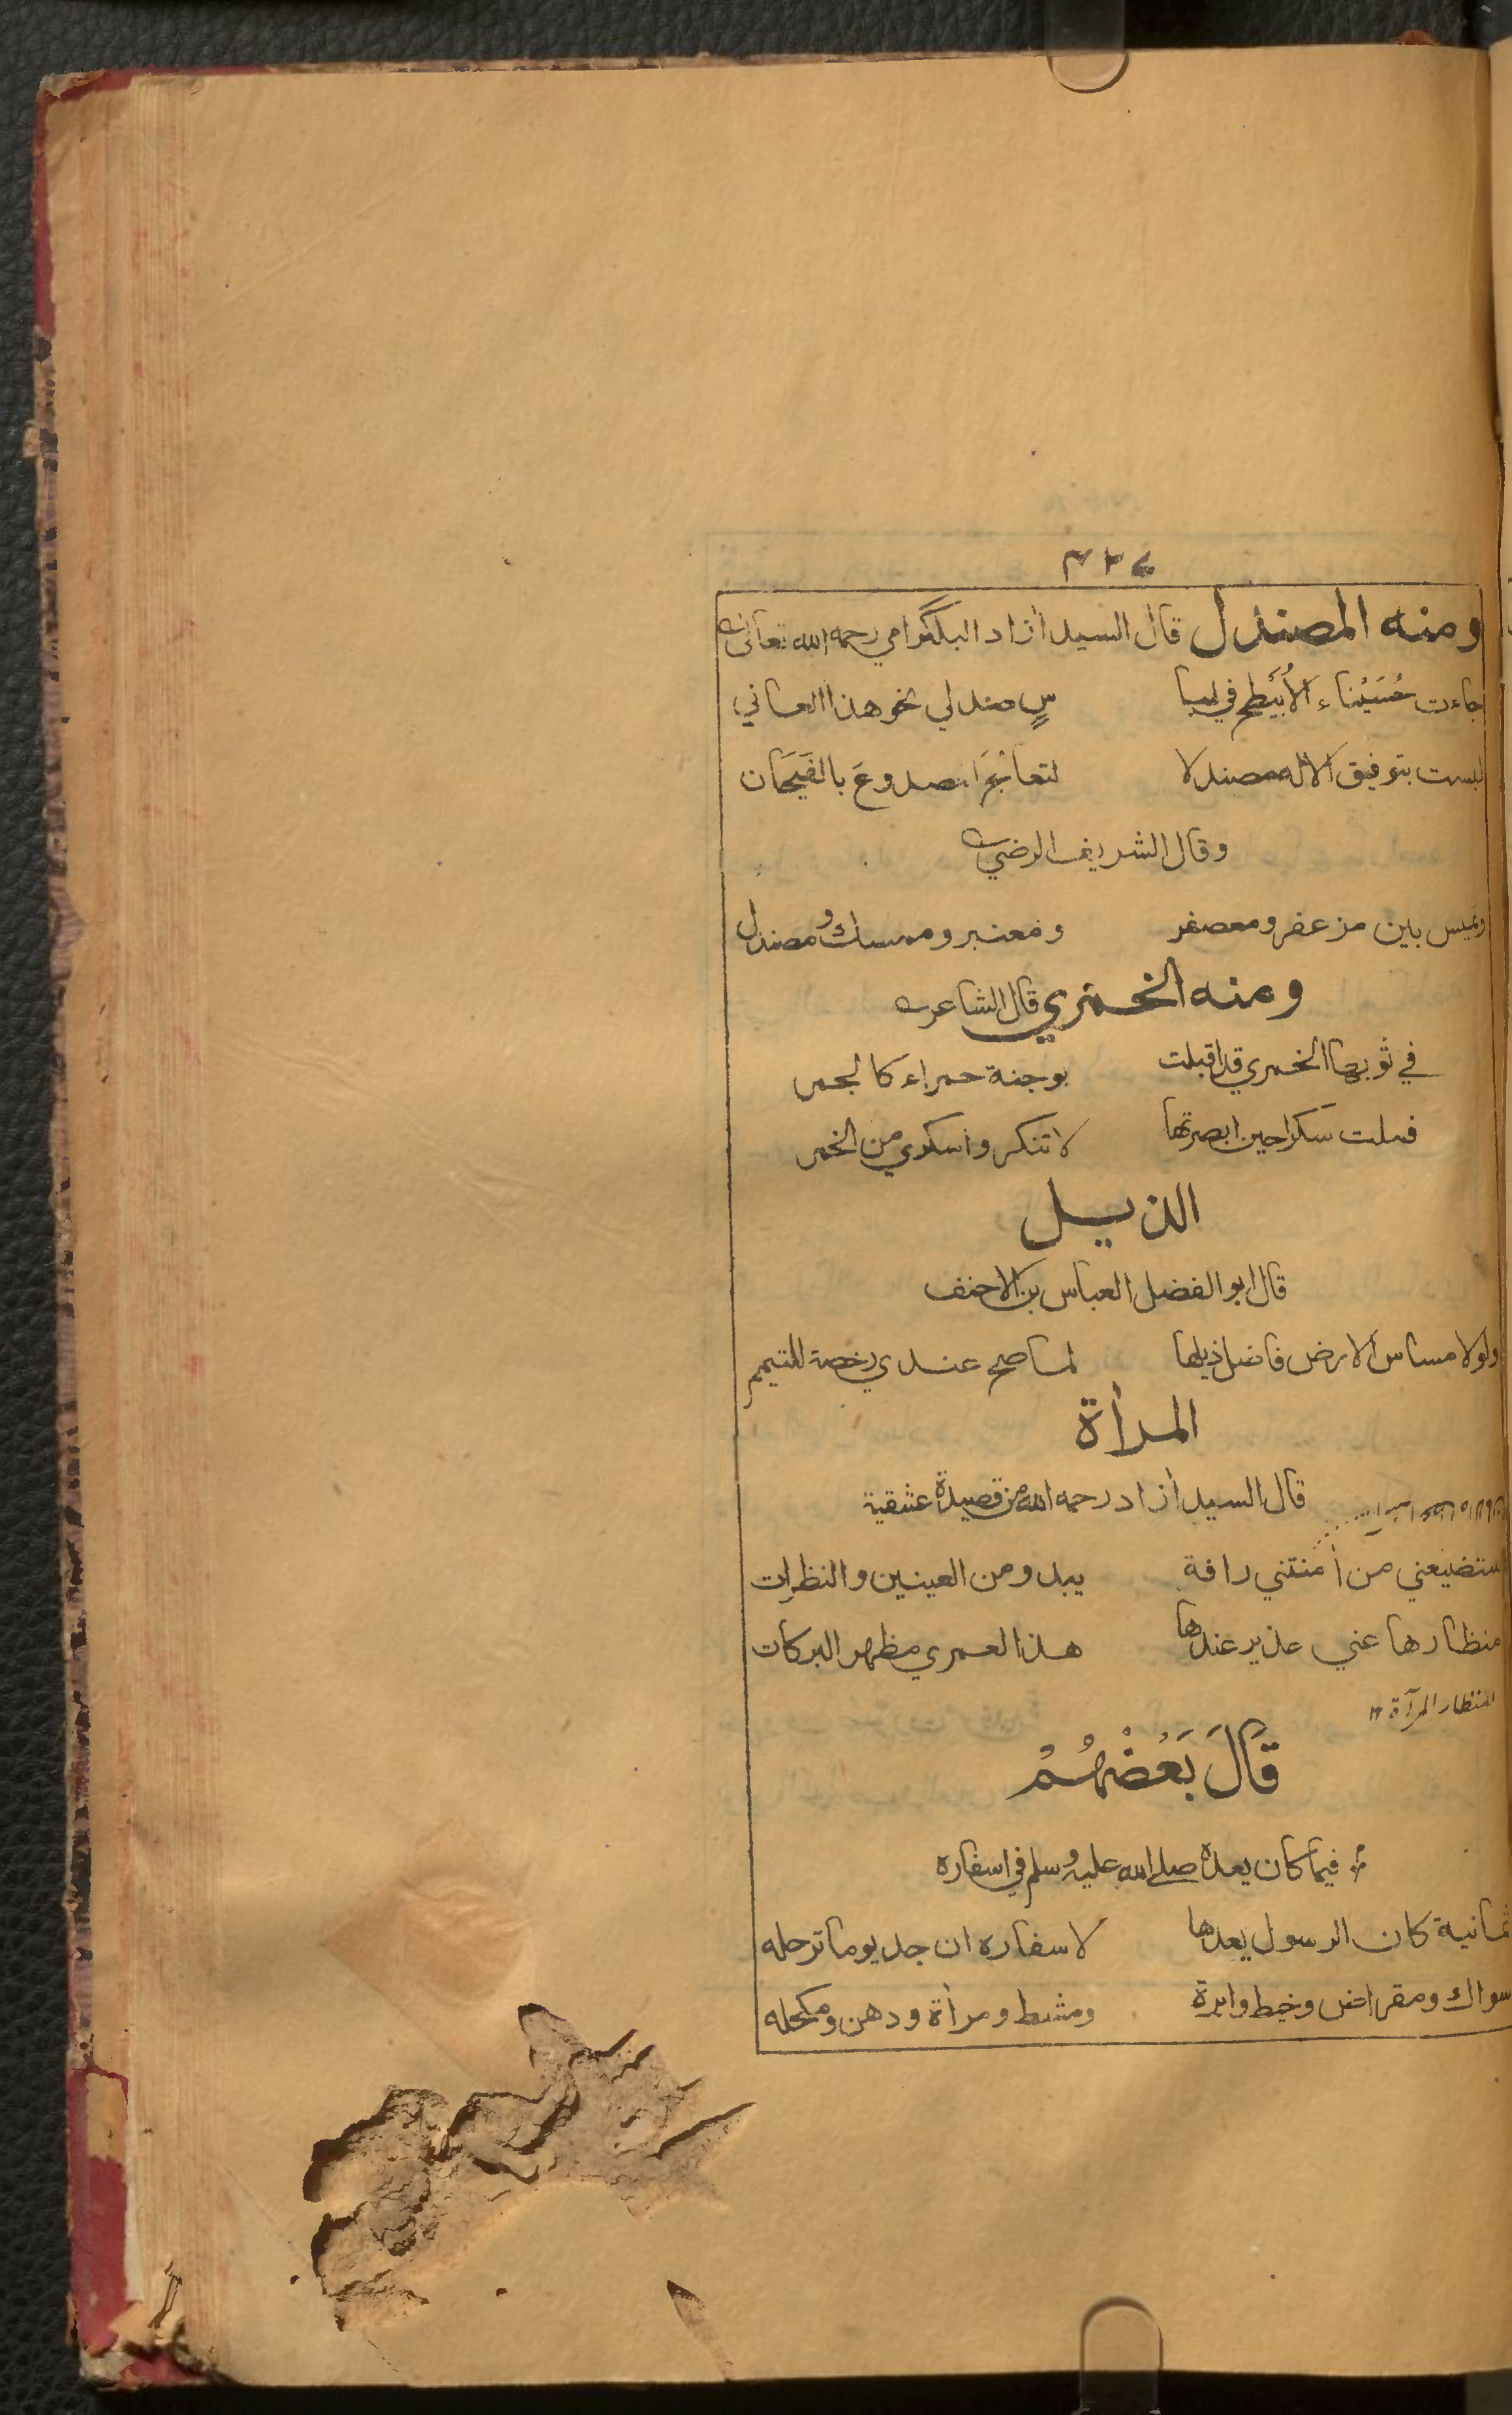 ٤٢٧
ومنه المصندل قال السيد آزاد البلگرامي رحمه الله تعالى
جاءت حُسَيْناء الأُبَيْطح في لبا سٍ صندلي نحو هذا العاني
لبست بتوفيق الاله مصندلا لتعالج الصدوعَ بالفَيَحَان
وقال الشريف الرضي
وتميس بين مزعفر ومعصفر ومعنبر وممسك ومصندل
ومنه الخمري قال الشاعر
في ثوبها الخمري قد اقبلت بوجنة حمراء كالجمر
فملت سكرا حين ابصرتها لا تنكروا سكري من الخمر
الذيل
قال ابو الفضل العباس بن الاحنف
ولولا مساس الارض فاضل ذيلها لما صح عندي رخصة للتيمم
المرأة
قال السيد آزاد رحمه الله من قصيدة عشقية
ستضيعني من أمنتني رافة يبدو من العينين والنظرات
منظارها عني عذير عندها هذا لعمري مظهر البركات
المنظار المرآة ١٢
قَالَ بَعْضُهُمْ
فيما كان يعده صلى الله عليه وسلم في اسفاره
ثمانية كان الرسول يعدها لاسفاره ان جد يوما ترحله
سواك ومقراض وخيط وابرة ومشط ومرأة ودهن ومكحله